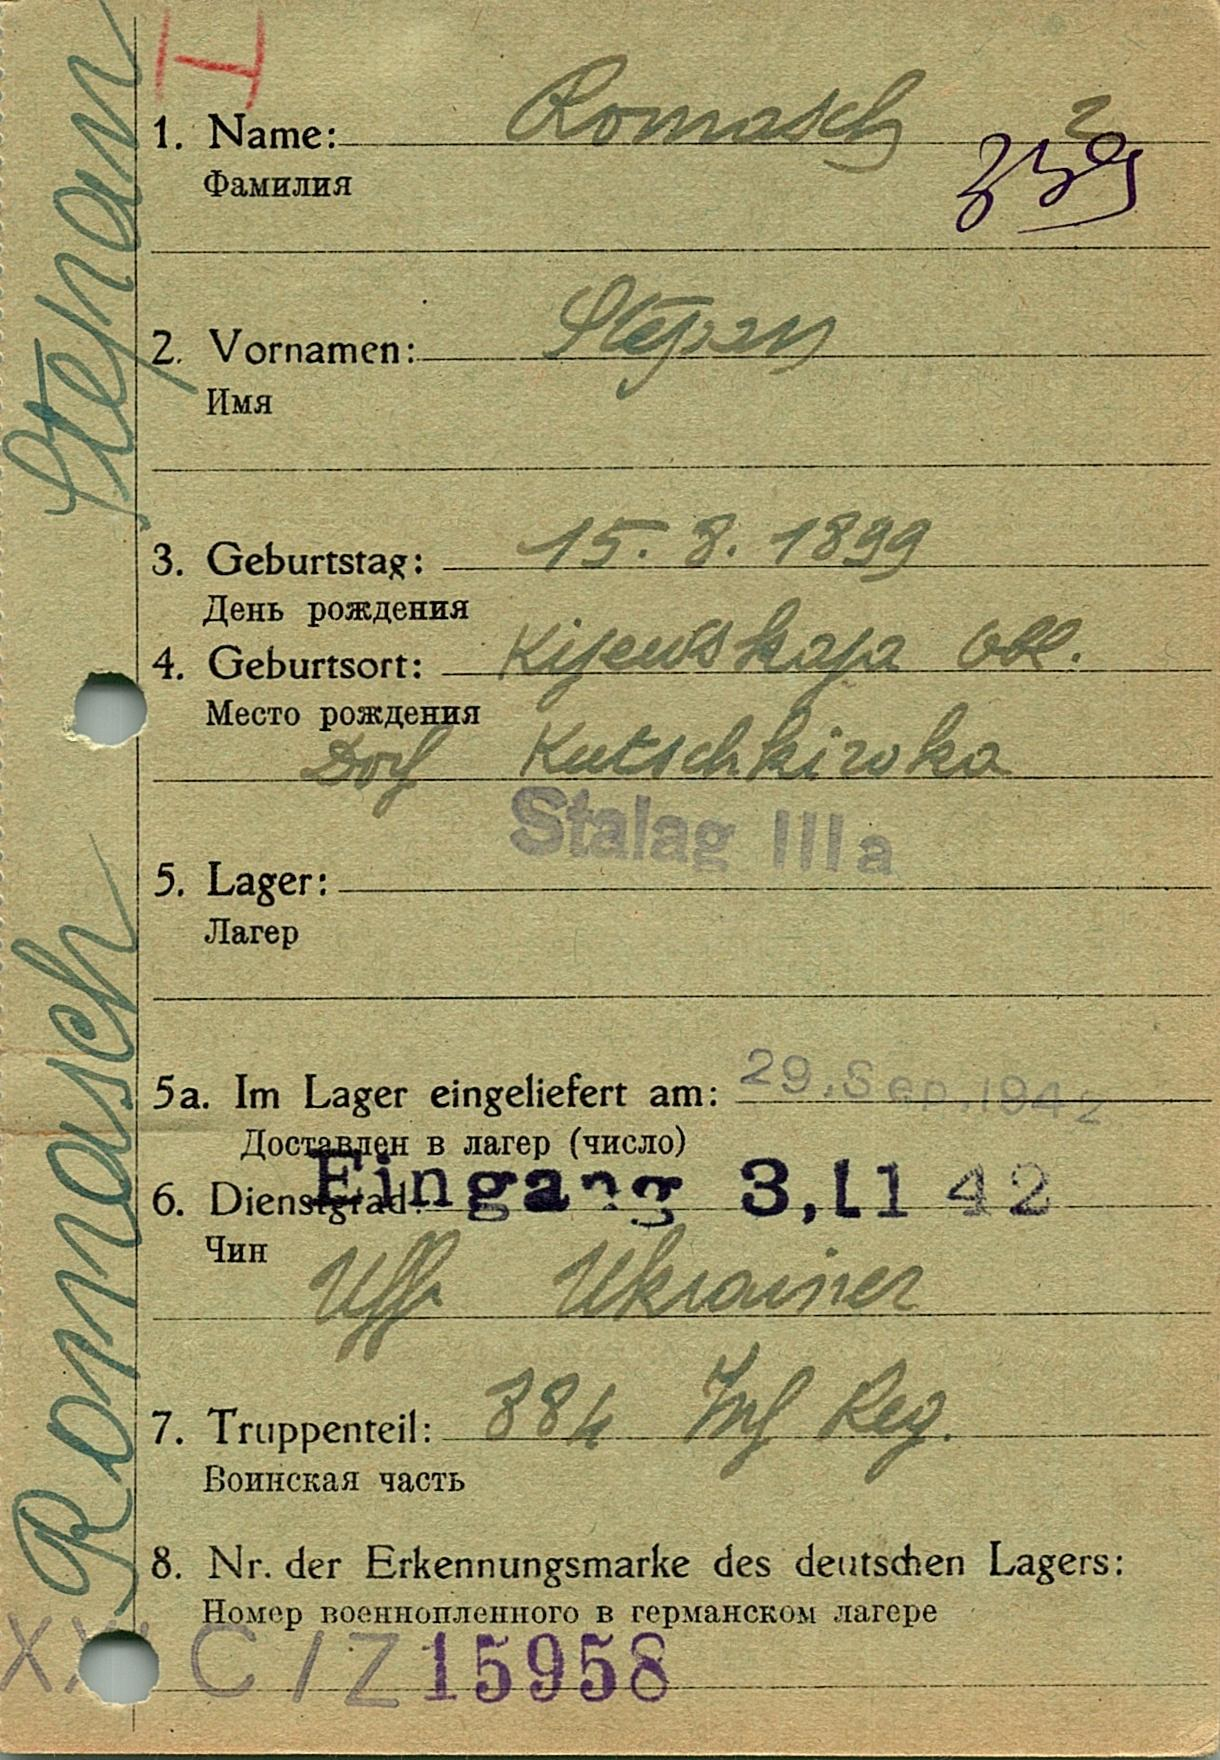 I
1. Name: Romasch 2
Фамилия
2. Vornamen: Stepan
Имя
3. Geburtstag: 15. 8. 1899
День рождения
4. Geburtsort: Kijewskaja Obl.
Место рождения
Dorf Kutschkiwka
Stalag IIIa
5. Lager:
Лагер
5a. Im Lager eingeliefert am: 29. Sep. 1942
Доставлен в лагер (число)
Eingang 3, 11 42
6. Dienstgrad:
Чин
Uffz Ukrainer
7. Truppenteil: 884 Inf Reg.
Воинская часть
8. Nr. der Erkennungsmarke des deutschen Lagers:
Номер военнопленного в германском лагере
C / Z 15958
Romasch Stepan